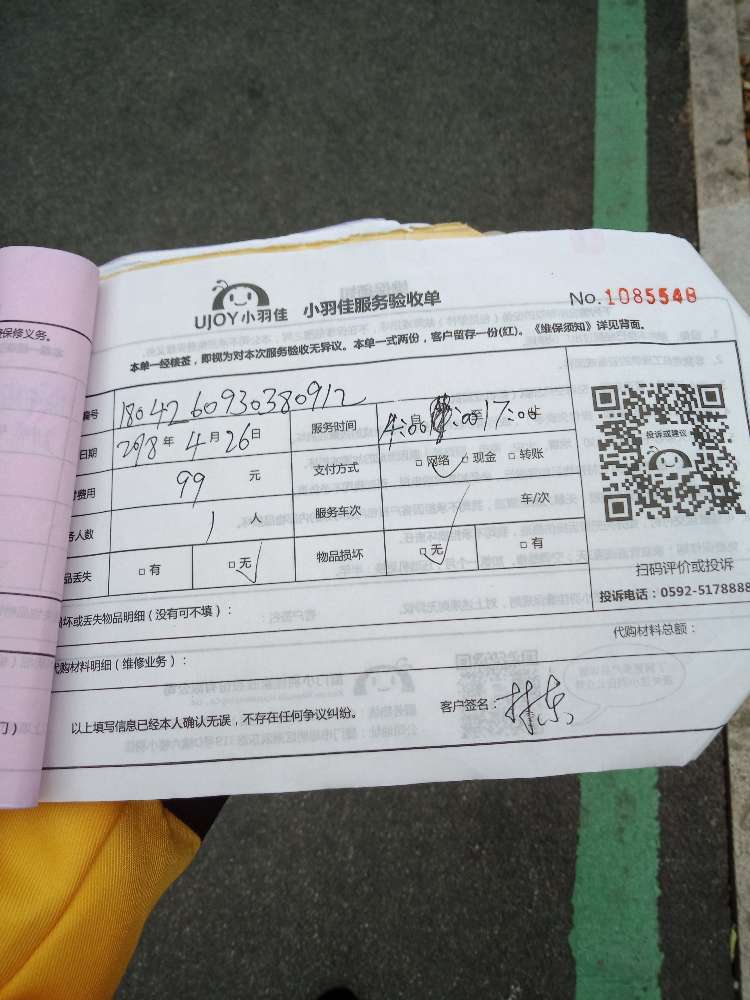 UJOY小羽佳 小羽佳服务验收单 No.1085548
本单一经核签,即视为对本次服务验收无异议。本单一式两份,客户留存一份(红)。《维保须知》详见背面。
保修义务。
编号 1804260930380912 服务时间 自 至17:00止
日期 2018年4月26日 支付方式 □网络 □现金 □转账
费用 99 元
人数 1 人 服务车次 车/次
品丢失 □有 □无 物品损坏 □无 □有
投诉或建议
扫码评价或投诉
投诉电话:0592-5178888
损坏或丢失物品明细(没有可不填):
代购材料明细(维修业务): 代购材料总额:
以上填写信息已经本人确认无误,不存在任何争议纠纷。 客户签名: